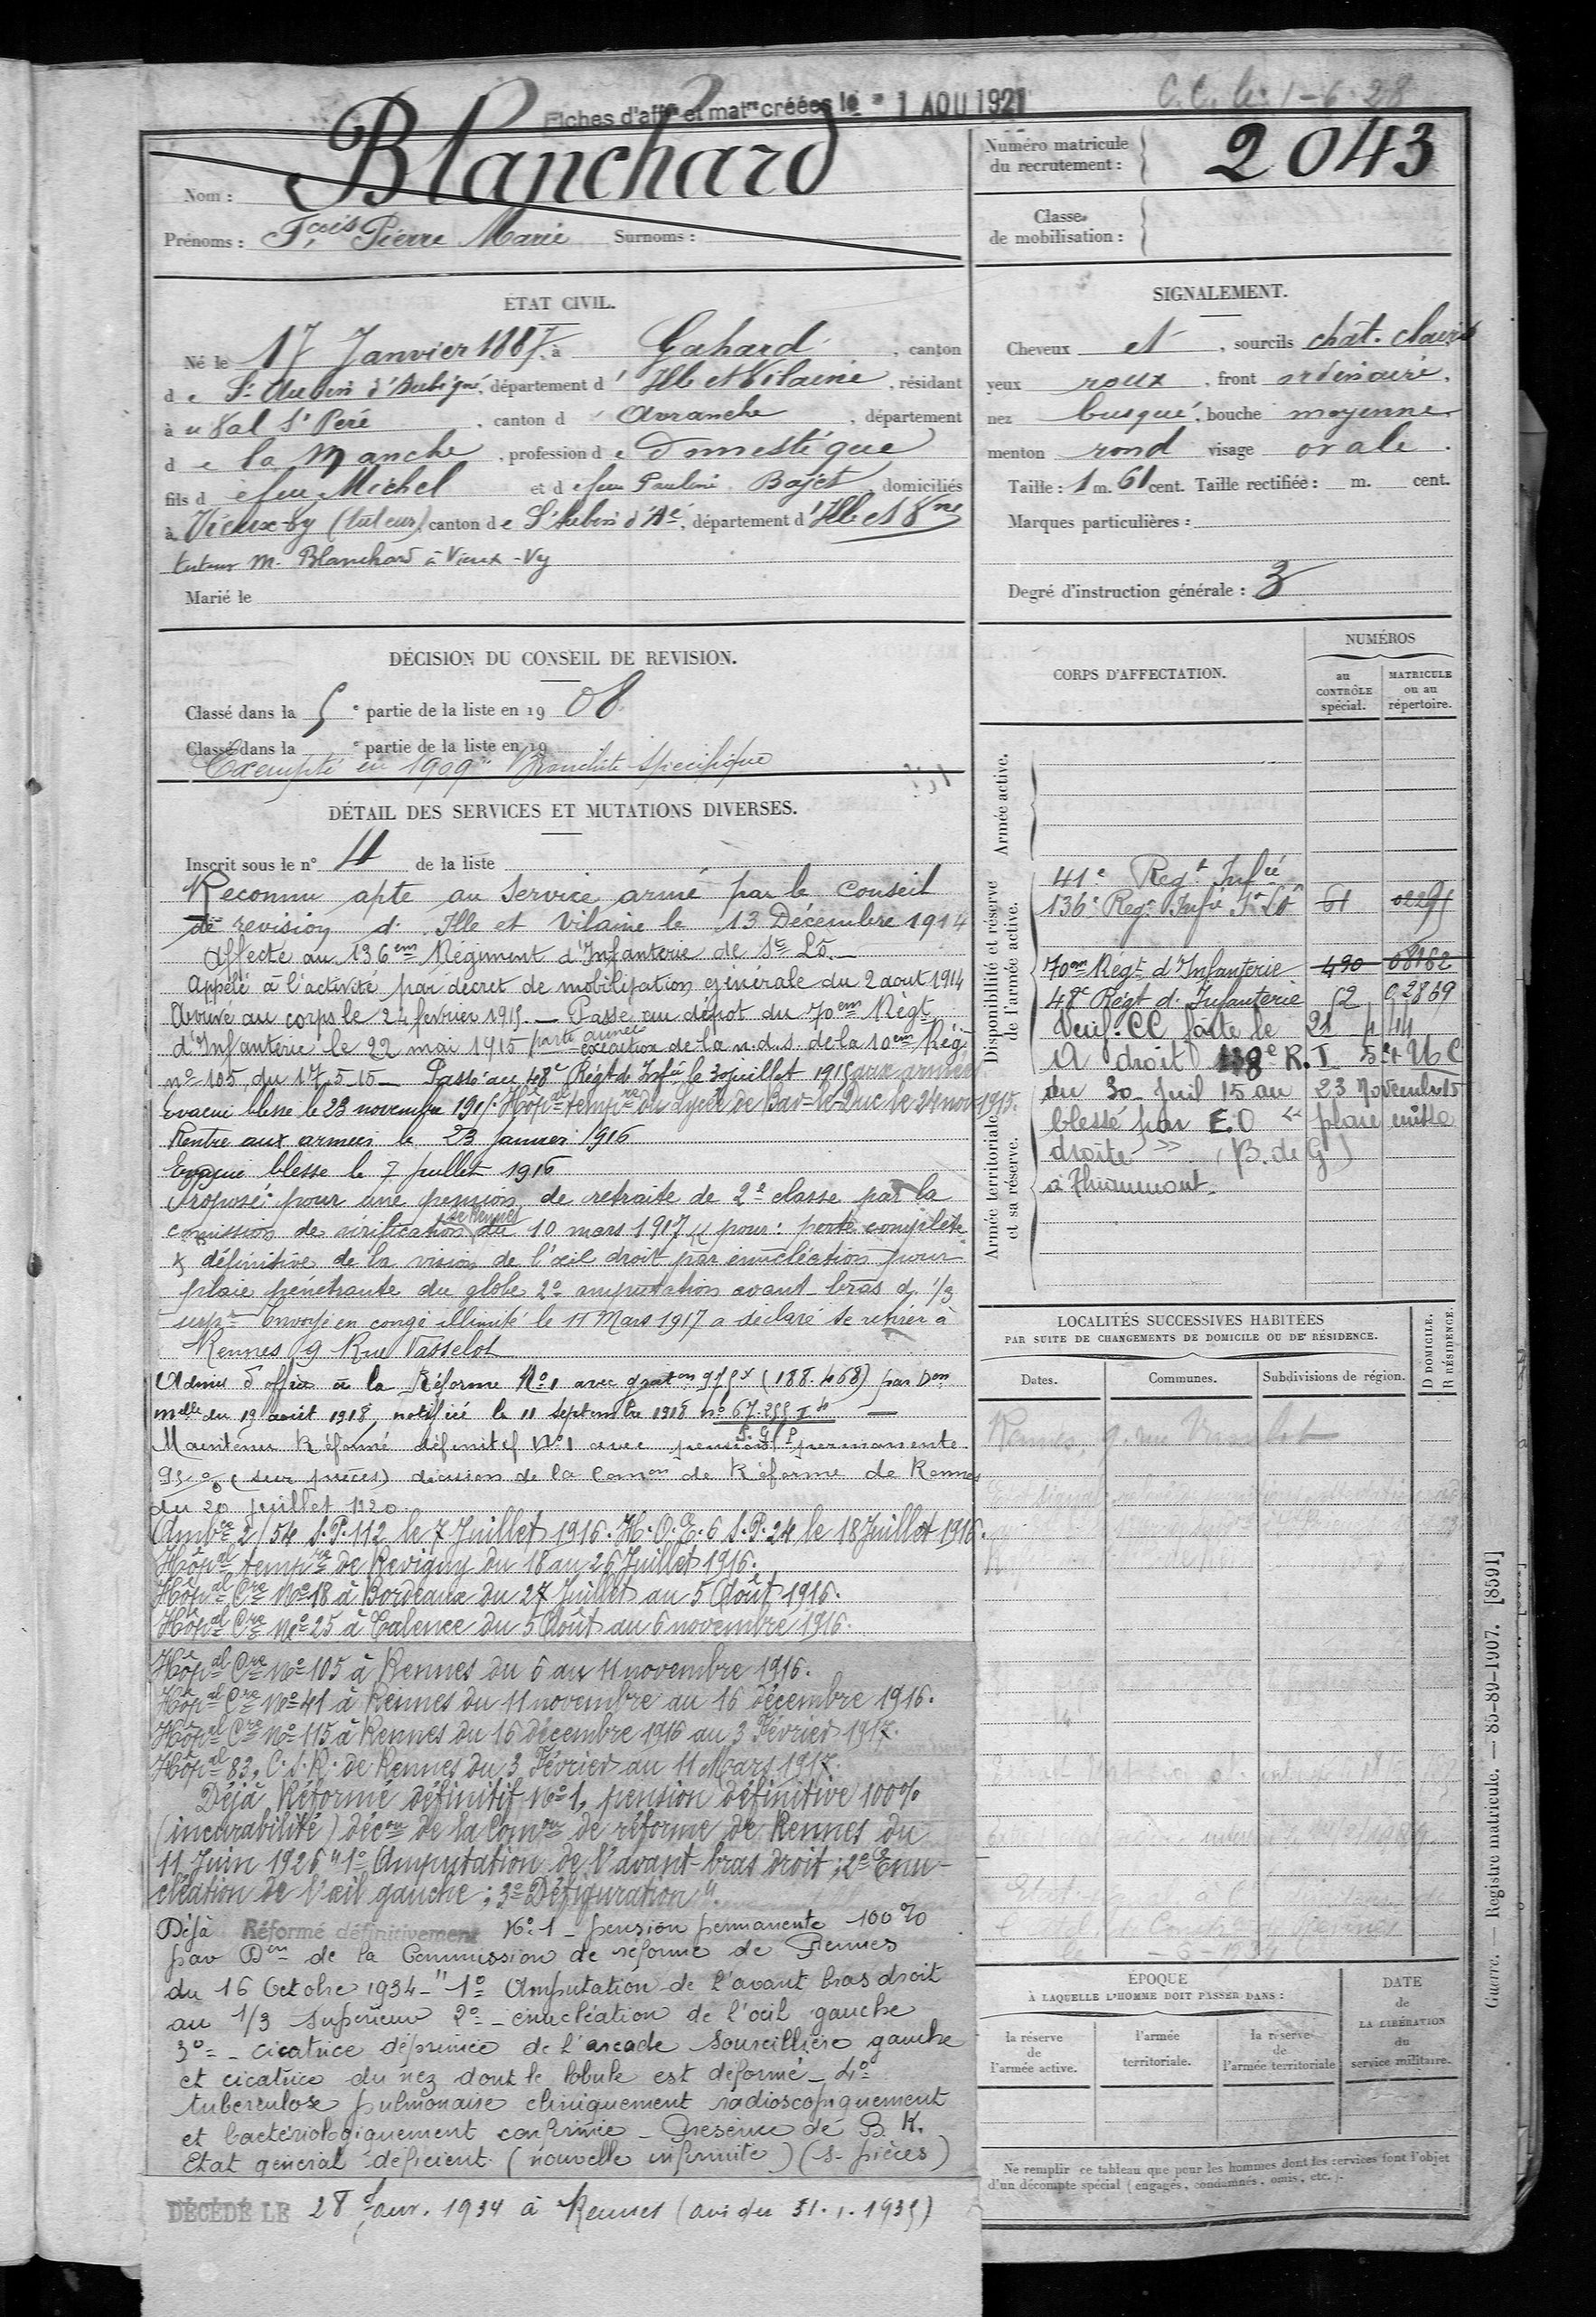 Fiches d'aff<sup>on</sup> et mat<sup>re</sup> créées le 1 AOU 1921
C.C. le 1-6-28
Nom : Blanchard
Prénoms : Fçois Pierre Marie Surnoms :
Numéro matricule du recrutement : 2043
Classe de mobilisation :
ÉTAT CIVIL.
Né le 17 Janvier 1887, à Gahard, canton
de St Aubin d'Aubigné, département d' Ille et Vilaine, résidant
à u Val St Peré, canton d Avranche, département
de la Manche, profession de Domestique
fils de feu Michel et de feu Pauline Bajet, domiciliés
à Vieux-Vy (tuteur), canton de St Aubin d'Aé, département d' Ille et Vne
tuteur M. Blanchard à Vieux-Vy
Marié le
SIGNALEMENT.
Cheveux et, sourcils chât. clairs
yeux roux, front ordinaire,
nez busqué, bouche moyenne
menton rond visage ovale.
Taille : 1 m. 61 cent. Taille rectifiée : m. cent.
Marques particulières :
Degré d'instruction générale : 3
DÉCISION DU CONSEIL DE REVISION.
Classé dans la 5e partie de la liste en 1908
Classé dans la e partie de la liste en 19
Exempté en 1909 "Bronchite spécifique
DÉTAIL DES SERVICES ET MUTATIONS DIVERSES.
Inscrit sous le n° 4 de la liste
Reconnu apte au Service armé par le Conseil
de revision d. Ille et Vilaine le 13 Décembre 1914
Affecté au 136em Régiment d'Infanterie de St Lô.
Appelé à l'activité par décret de mobilisation générale du 2 aout 1914
Arrivé au corps le 24 fevrier 1915. — Passé au dépot du 70em Régt
d'Infanterie le 22 mai 1915 exécution de la n.d.s. de la 10em Rég
n° 105 du 17.5.15 — Passé au 48e Régt d. Infie le 30 juillet 1915 aux armées
Evacué blessé le 23 novembre 1915. Hôpal tempre du Lycée de Bar-le-Duc le 24 nov 1915.
Rentré aux armées le 23 Janvier 1916
Evacué blessé le 7 juillet 1916
Proposé pour une pension de retraite de 2e classe par la
comission de vérification de Rennes du 10 mars 1917 pour : perte complète
& définitive de la vision de l'œil droit par énucléation pour
plaie pénétrante du globe 2° amputation avant-bras d. 1/3
supr Envoyé en congé illimité le 11 Mars 1917 a déclaré se retirer à
Rennes 9 Rue Vasselot
Admis d'office à la Réforme N°1 avec graton 975x (188.468) par Don
mlle du 19 août 1918, notifiée le 11 septembre 1918 n° 67.255 I
Maintenu Réformé définitif N°1 avec pension permanente.
95% (sur pièces) décision de la Comon de Réforme de Rennes
du 20 Juillet 1920.
Ambce 2/54 S.P. 112 le 7 Juillet 1916. H.O.E. 6 S.P. 24 le 18 Juillet 1916.
Hôpal tempre de Revigny du 18 au 26 Juillet 1916.
Hôpal Cre N°18 à Bordeaux du 27 Juillet au 5 Août 1916.
Hôpal Cre N°25 à Talence du 5 Août au 6 novembre 1916.
Hôpal Cre N°105 à Rennes du 6 au 11 novembre 1916.
Hôpal Cre N°41 à Rennes du 11 novembre au 16 décembre 1916.
Hôpal Cre N°115 à Rennes du 16 décembre 1916 au 3 Février 1917.
Hôpal 83, C.S.R. de Rennes du 3 Février au 11 Mars 1917.
Déjà Réformé définitif N°1, pension définitive 100%
(incurabilité) décon de la Comon de réforme de Rennes du
11 Juin 1926 "1° Amputation de l'avant-bras droit ; 2° Enu-
cléation de l'œil gauche ; 3° Défiguration".
Déjà Réformé définitivement N°1 - pension permanente 100%
par Don de la Commission de réforme de Rennes
du 16 Octobre 1934 - "1° Amputation de l'avant bras droit
au 1/3 supérieur 2° - énucléation de l'œil gauche
3° - cicatrice déprimée de l'arcade sourcilière gauche
et cicatrice du nez dont le lobule est déformé - 4°
tuberculose pulmonaire cliniquement radioscopiquement
et bactériologiquement confirmée - Présence de B.K.
Etat général déficient. (nouvelle infirmité) (s. pièces)
DÉCÉDÉ LE 28 Janv. 1934 à Rennes (avis du 31.1.1935)
CORPS D'AFFECTATION.
NUMÉROS
au CONTRÔLE spécial.
MATRICULE ou au répertoire.
Armée active.
Disponibilité et réserve de l'armée active.
41e Régt Infie
136e Régt Infie St Lô 61
70em Régt d'Infanterie 490 08162
48e Régt d. Infanterie 52 02869
Verif. CC faite le 21 4 44
A droit 48e R.I 54 U C
du 30 Juil 15 au 23 Novembre 15
blessé par E.O "plaie cuisse
droite" (B. de G)
à Thiaumont.
Armée territoriale et sa réserve.
LOCALITÉS SUCCESSIVES HABITÉES
PAR SUITE DE CHANGEMENTS DE DOMICILE OU DE RÉSIDENCE.
D DOMICILE. R RÉSIDENCE.
Dates. Communes. Subdivisions de région.
Rennes, 9. rue Vasselot
ÉPOQUE
À LAQUELLE L'HOMME DOIT PASSER DANS :
la réserve de l'armée active.
l'armée territoriale.
la réserve de l'armée territoriale
DATE de LA LIBÉRATION du service militaire.
Ne remplir ce tableau que pour les hommes dont les services font l'objet
d'un décompte spécial (engagés, condamnés, omis, etc.).
Guerre. — Registre matricule. — 85-89-1907. [8591]